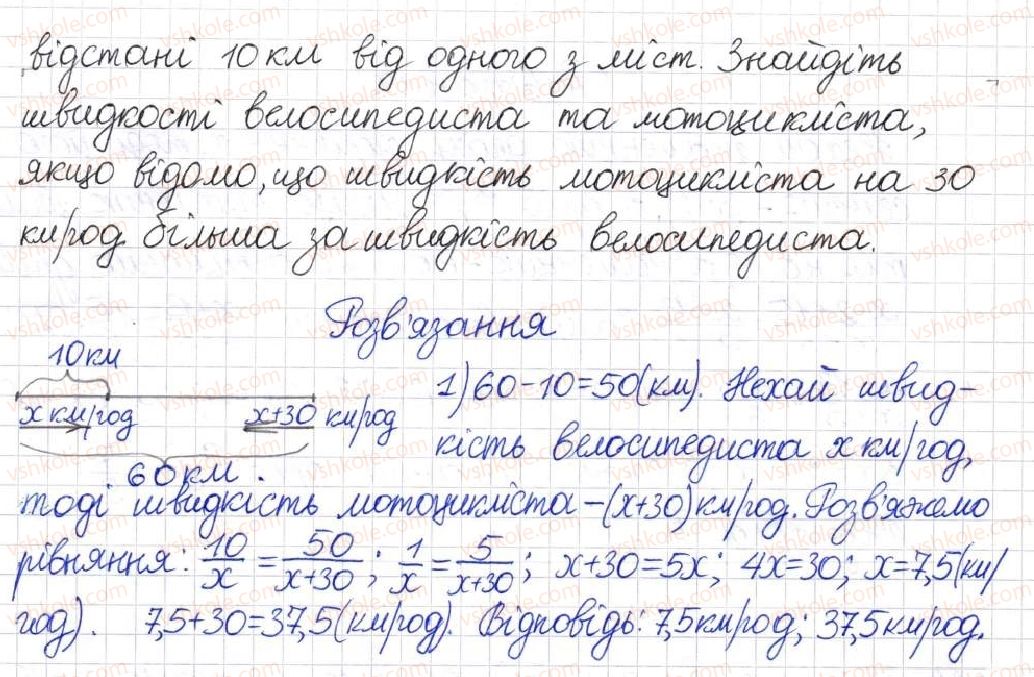 відстані 10 км від одного з міст. Знайдіть
швидкості велосипедиста та мотоцикліста,
якщо відомо, що швидкість мотоцикліста на 30
км/год більша за швидкість велосипедиста.
Розв'язання
10 км
x км/год x+30 км/год
60 км.
1) 60-10=50(км). Нехай швид-
кість велосипедиста x км/год,
тоді швидкість мотоцикліста-(x+30) км/год. Розв'яжемо
рівняння: 10/x = 50/(x+30); 1/x = 5/(x+30); x+30=5x; 4x=30; x=7,5(км/
год). 7,5+30=37,5(км/год). Відповідь: 7,5км/год; 37,5км/год.
vshkole.com